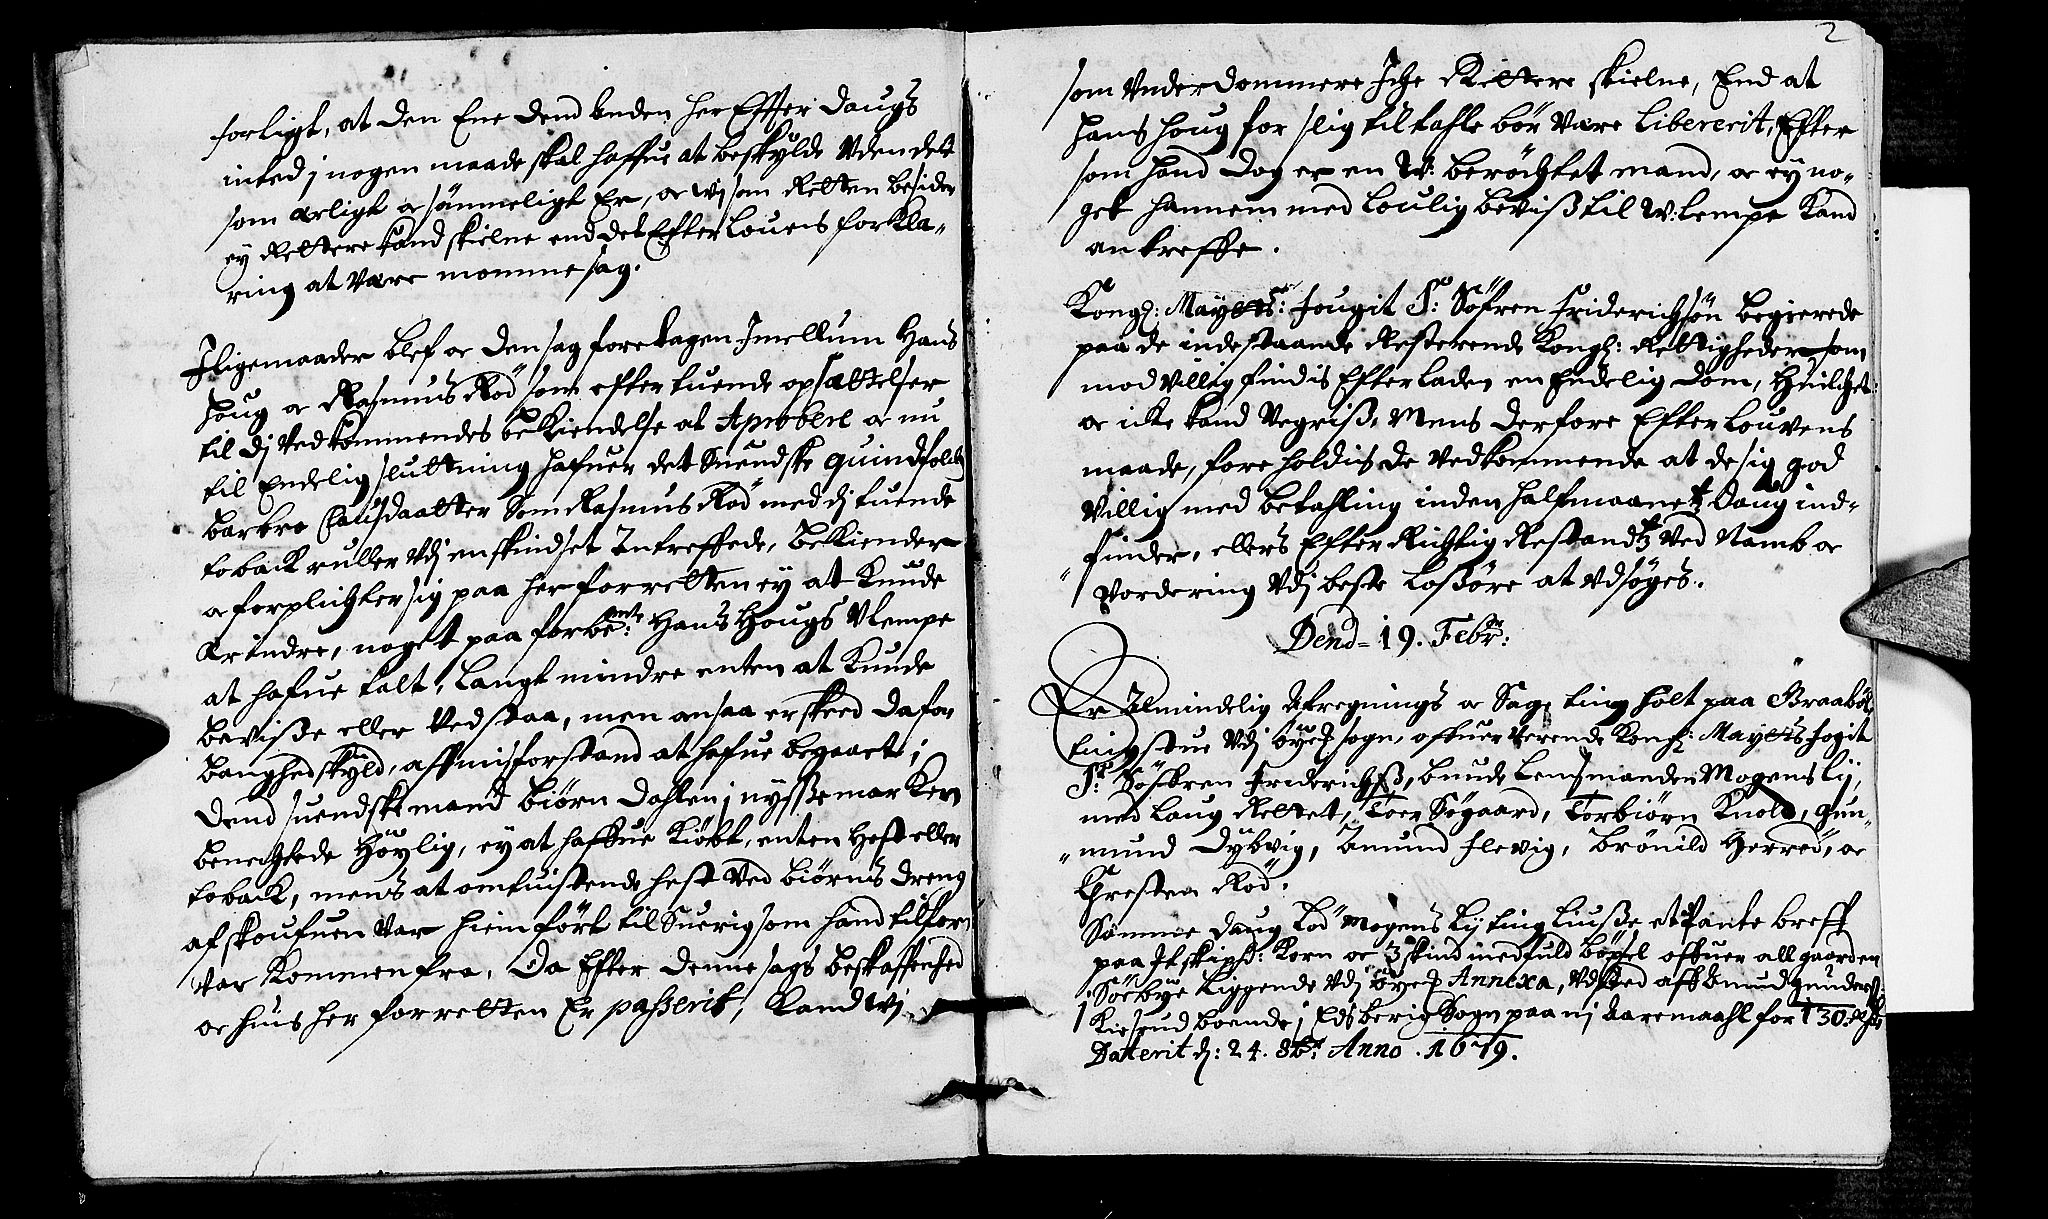 forligt, at den Ene dend anden her Effter daugs
inted j nogen maade skal haffue at beskylde Vden det
som ærligt oc sømmeligt Er, oc wj som Retten besider
ey Rettere kand skielne end det Efter Louens forkla-
ring at være momme sag.
Jligemaader blef oc den sag foretagen Jmellum Hans
Houg oc Rasmus Rød som efter tuende opsættelser
til dj Vedkommendes bekiendelse at Aprobere oc nu
til Endelig sluttning hafuer det Suendske quindfolck
barbro Clausdaatter Som Rasmus Rød med dj tuende
toback ruller Vdj en skindset Intreffede, bekiender
oc forplichter sig paa her for retten ey at kunde
Erindre, noget paa forbente: Hans Hougs Vlempe
at hafue talt, langt mindre enten at kunde
bevisse eller Vedstaa, men ansaa er skeed da for
banghed skyld, aff misforstand at hafue begaaet;
dend suendske mand biørn dahlen j nysse mar ken
benechtede Høylig, ey at haffue kiøbt, enten Hest eller
toback, mens at omtuistende hest Ved biørns dreng
af skoufuen var hiemført til Suerig som hand tilforn
var kommen fra, Da Efter denne sags beskaffenhed
oc huis her for retten Er passerit, kand wj
2
som Vnderdommere Iche Rettere skielne, End at
Hans Houg for slig tiltahle bør være Libererit, Efter
som hand dog er en W: berøchtet mand, oc ey no-
get hannem med loulig beviss til W: lempe kand
antreffe.
Kongl: Mayetts: fougit Sr: Søfren Friderichsøn begierede
paa de indestaande Resterende Kongl: Rettigheder, som
modvillig findis Efterladen en Endelig dom, Huilchet
oc icke kand Vegriss, Mens derfore Efter Louvens
maade, foreholdis de vedkommende at de sig god
villig med betahling inden halfmaanetz daug ind-
finder, ellers Efter Richtig Restandtz Ved Namb oc
Vordering Vdj beste Løssøre at Vdsøges.
Dend = 19. Febr:
Er Almindelig Afregnings oc Sage ting holt paa Braabøl
tingstue Vdj øyes sogn, offuerverende Kongl: Mayetts fogit
Sr: Søffren Friderichss, bunde Lensmanden Mogens Lij,
med Laug Rettet, Toer Søgaard, Torbiørn Knold, Gun-
mund Dybvig, Amund Flevig, Brønild Herrød, oc
Chresten Rød.
Samme daug lod Mogens Lij ting liusse, et Pante breff
paa It skipd: Korn oc 3 skind med fuld bøxel offuer all gaarden
Søebye liggende Vdj øyes Annexa, Vdsted aff Amund Gunders:
Kiesrud boende j Edsberig Sogn paa nj aaremaahl for 130 Rdr
Datterit d: 24. 8br: Anno. 1679.